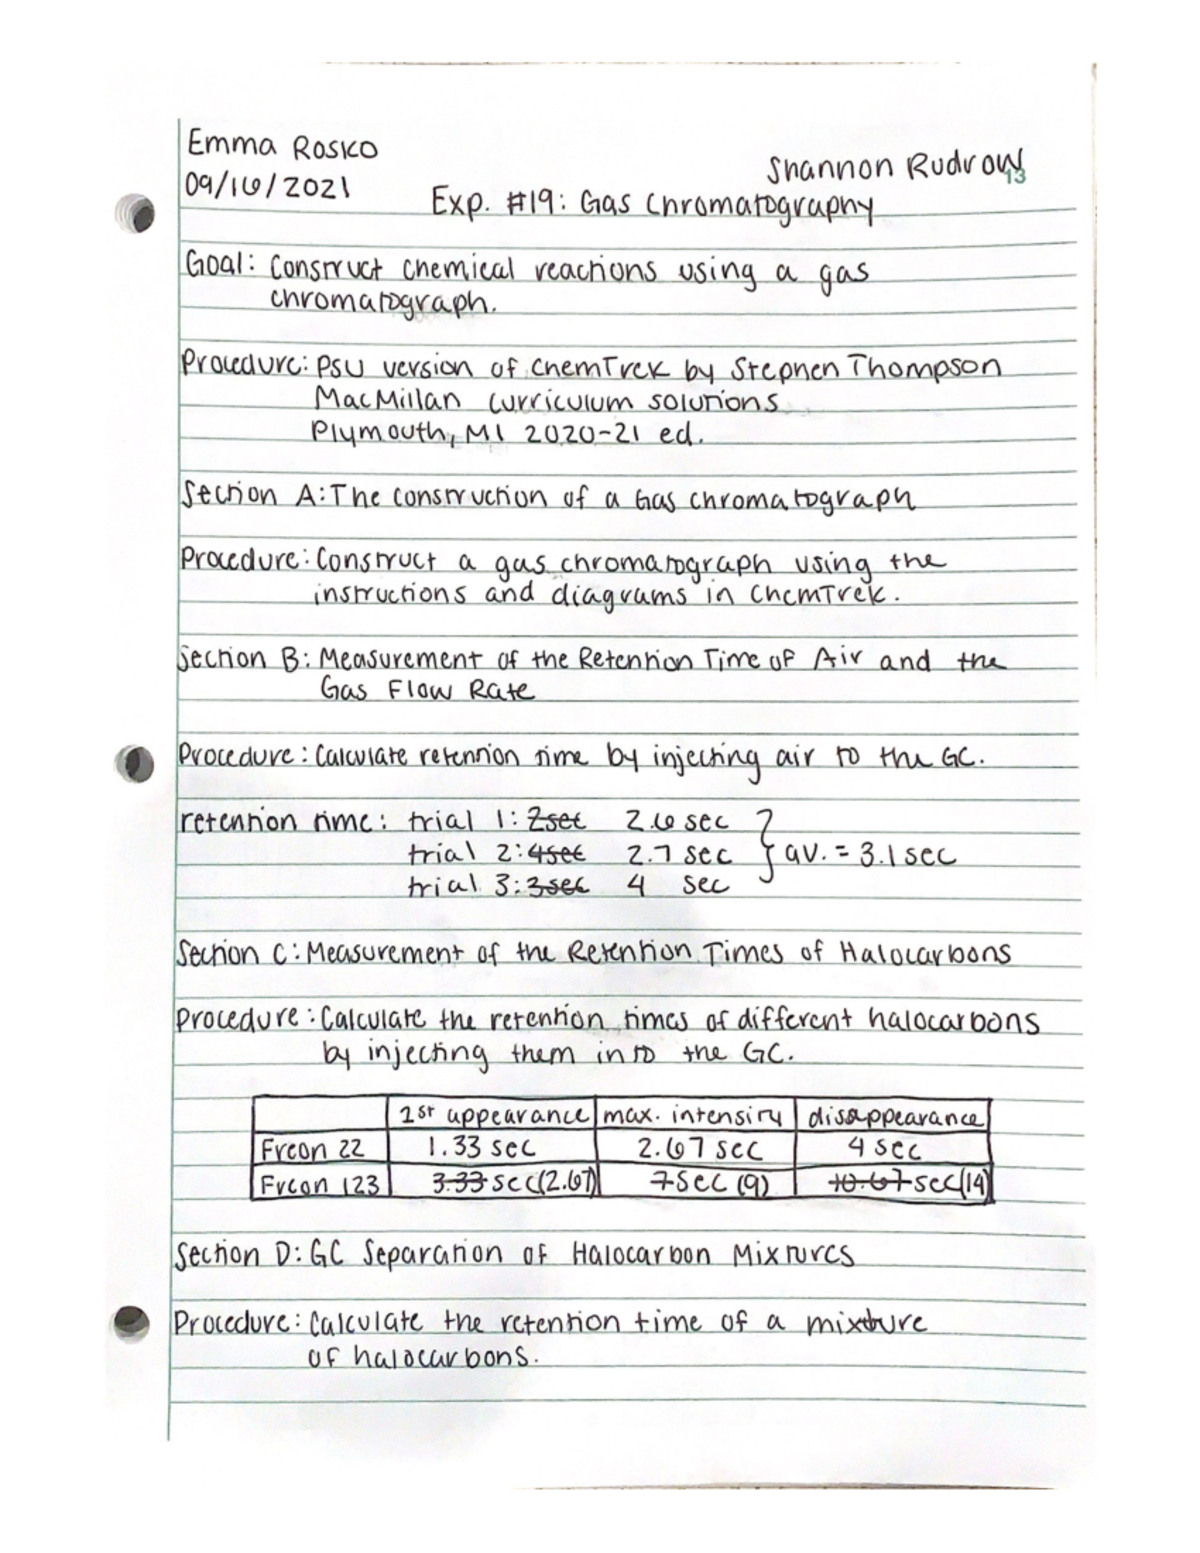 Emma Rosko
Shannon Rudrow
13
09/16/2021
Exp. #19: Gas Chromatography
Goal: Construct chemical reactions using a gas
chromatograph.
Procedure: PSU version of ChemTrek by Stephen Thompson
MacMillan curriculum solutions
Plymouth, MI 2020-21 ed.
Section A: The construction of a Gas chromatograph
Procedure: Construct a gas chromatograph using the
instructions and diagrams in ChemTrek.
Section B: Measurement of the Retention Time of Air and the
Gas Flow Rate
Procedure: Calculate retention time by injecting air to the GC.
retention time: trial 1: 2sec 2.6 sec
trial 2: 4sec 2.7 sec } av. = 3.1 sec
trial 3: 3sec 4 sec
Section C: Measurement of the Retention Times of Halocarbons
Procedure: Calculate the retention times of different halocarbons
by injecting them into the GC.
1st appearance max. intensity disappearance
Freon 22 1.33 sec 2.67 sec 4 sec
Freon 123 3.33 sec (2.67) 7 sec (9) 10.67 sec (14)
Section D: GC Separation of Halocarbon Mixtures
Procedure: Calculate the retention time of a mixture
of halocarbons.